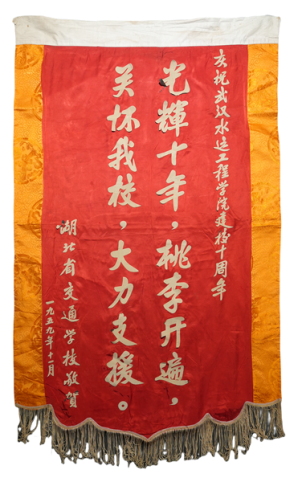 庆祝武汉水运工程学院建校十周年
光輝十年，桃李开遍，
关怀我校，大力支援。
湖北省交通学校敬賀
一九五九年十一月